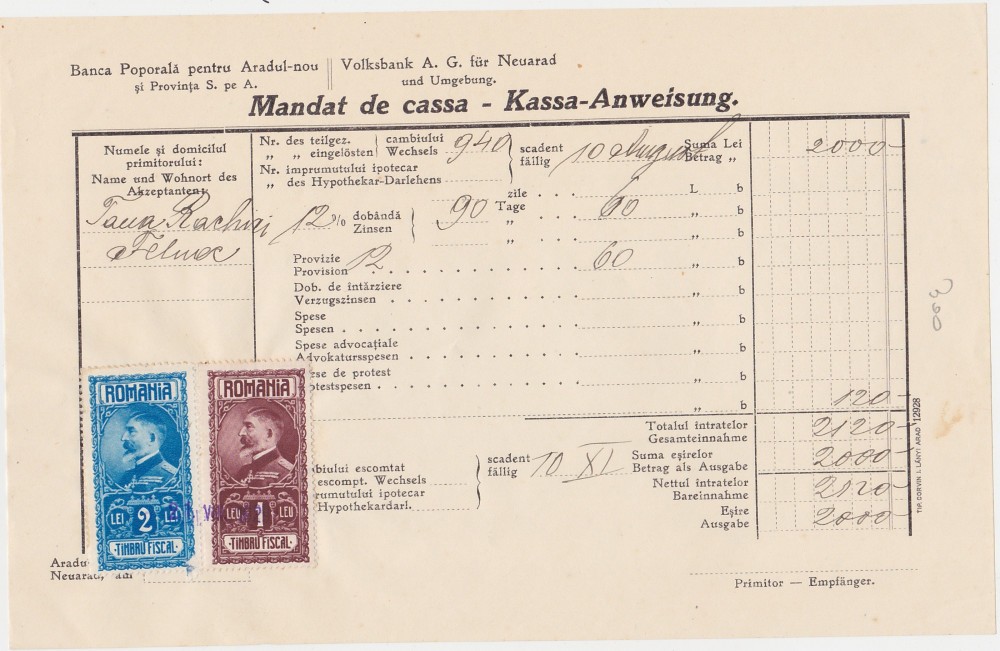 Banca Poporală pentru Aradul-nou
și Provința S. pe A.
Volksbank A. G. für Neuarad
und Umgebung.
Mandat de cassa - Kassa-Anweisung.
Numele și domicilul
primitorului:
Name und Wohnort des
Akzeptanten:
Nr. des teilgez. cambiului 940 scadent 10 August Suma Lei 2000-
„ „ eingelösten Wechsels fällig Betrag „
Nr. imprumutului ipotecar
„ des Hypothekar-Darlehens
zile L b
12 % dobândă 90 Tage 60 „ b
Zinsen „ „ b
Provizie
Provision 12 60 „ b
Dob. de întârziere
Verzugszinsen „ b
Spese
Spesen „ b
Spese advocațiale
Advokatursspesen „ b
ese de protest
otestspesen „ b
„ b 120-
Totalul intratelor 2120-
Gesamteinnahme
biului escomtat scadent 10 XI Suma eșirelor 2000-
escompt. Wechsels fällig Betrag als Ausgabe
prumutului ipotecar Nettul intratelor 2120-
Hypothekardarl. Bareinnahme
Eșire 2000-
Ausgabe
ROMANIA
LEI 2 LEI
TIMBRU FISCAL
ROMANIA
LEU 1 LEU
TIMBRU FISCAL
Aradu
Neuarad, am
Primitor — Empfänger.
TIP. CORVIN I. LÁNYI ARAD 12928
300